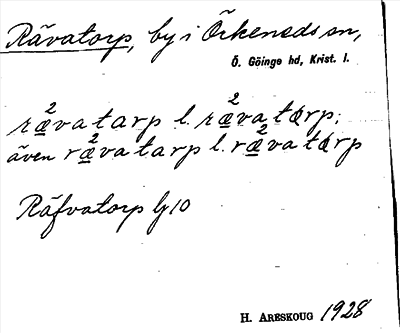 Rävatorp, by i Örkeneds sn,
Ö. Göinge hd, Krist. l.
ræ̲²vatarp l. ræ̲²vatɑrp;
även ræ̲²vatarp l. ræ̲²vatɑrp
Räfvatorp Gj 10
H. ARESKOUG 1928